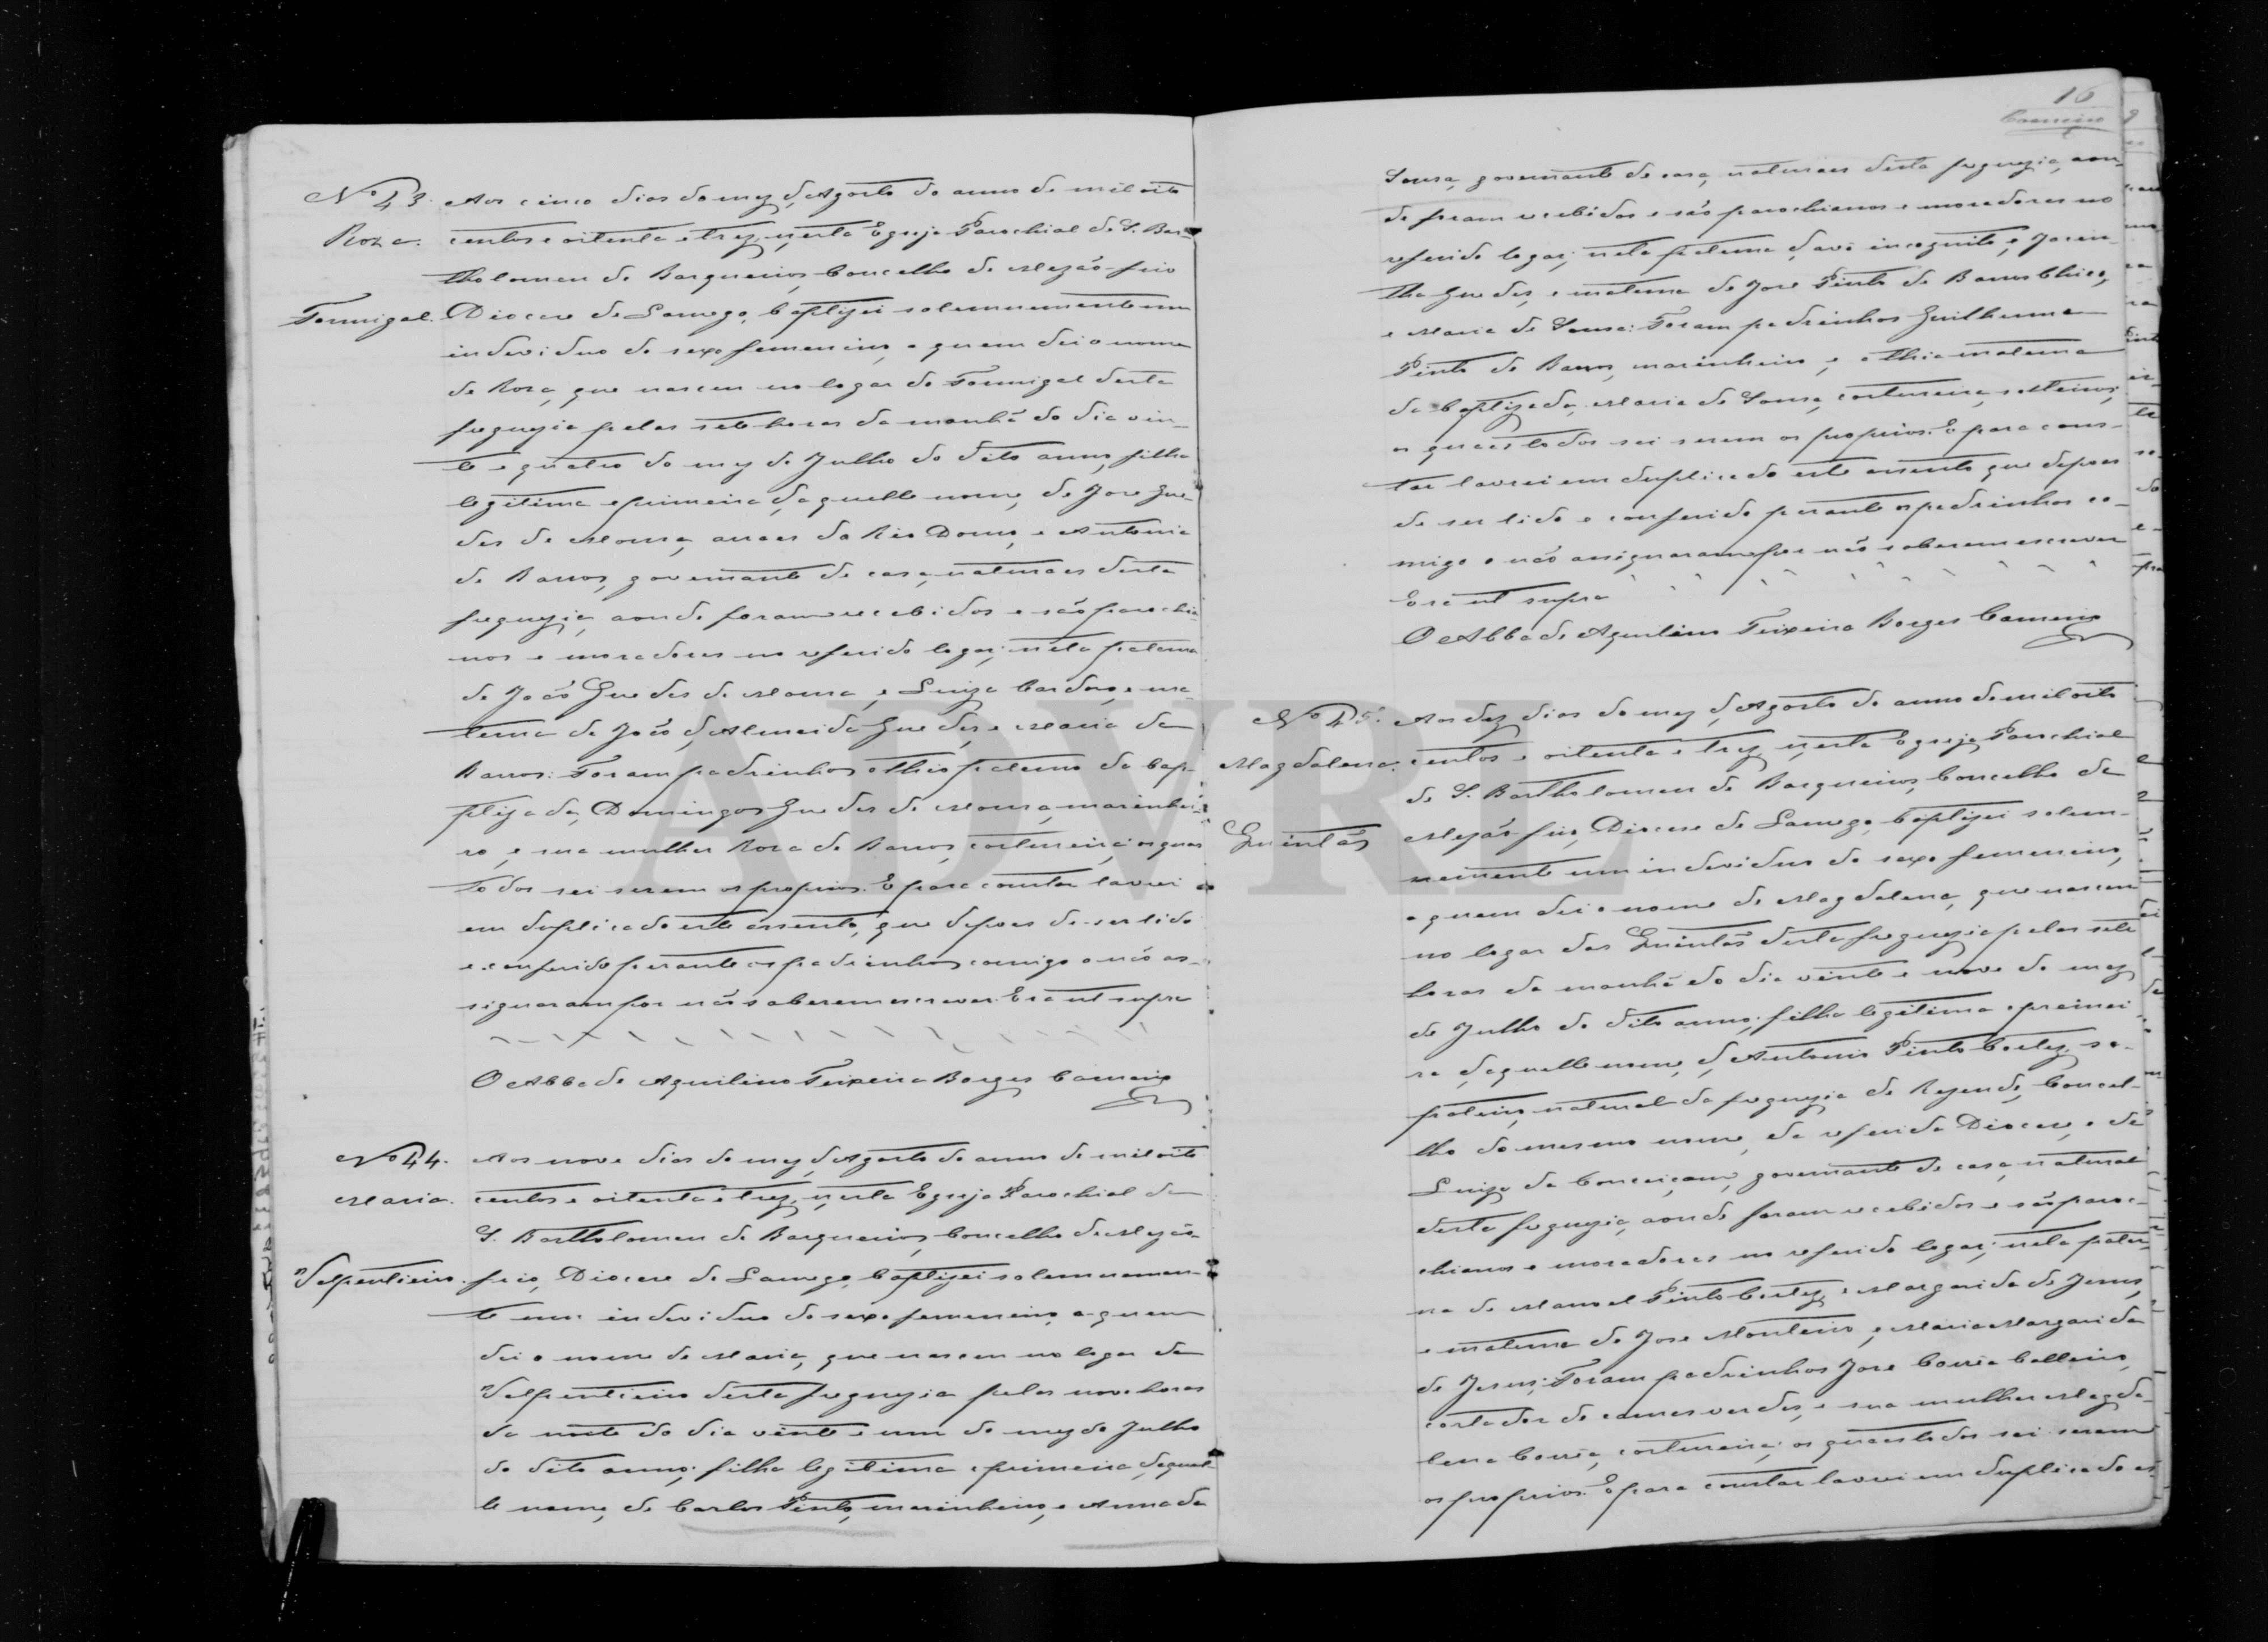 Nº 43.
Roza.
Formigal.
Aos cinco dias do mez d'Agosto do anno de mil oito
centos e oitenta e trez, n'esta Egreja Parochial de S. Bar-
tholomeu de Barqueiros, Concelho de Mezão-frio
Diocese de Lamego, baptizei solemnemente um
individuo do sexo femenino, a quem dei o nome
de Roza, que nasceu no logar do Formigal desta
freguezia pelas sete horas da manhã do dia vin-
te e quatro do mez de Julho do dito anno, filha
legitima e primeira d'aquelle nome, de Jose Gue-
des de Moura, arraes do Rio Douro, e Antonia
de Barros, governante de casa, naturaes desta
freguezia, aonde foram recebidos e são parochia-
nos e moradores no referido logar; neta paterna
de João Guedes de Moura, e Luiza Cardoso, e ma-
terna de João d'Almeida Guedes, e Maria de
Barros: Foram padrinhos o thio paterno da bap-
tizada, Domingos Guedes de Moura, marinhei-
ro, e sua mulher Roza de Barros, costureira; os quaes
todos sei serem os proprios. E para constar lavrei
em duplicado este assento, que depois de ser lido
e conferido perante os padrinhos comigo o não as-
signaram por não saberem escrever. Era ut supra
O Abbade Aquilino Teixeira Borges Carneiro
Nº 44.
Maria.
Valpentieiro.
Aos nove dias do mez d'Agosto do anno de mil oito
centos e oitenta e trez, n'esta Egreja Parochial de
S. Bartholomeu de Barqueiros, Concelho de Mezão-
frio, Diocese de Lamego, baptizei solemnemen-
te um individuo do sexo femenino, a quem
dei o nome de Maria, que nasceu no logar de
Valpentieiro desta freguezia pelas nove horas
da noite do dia vinte e um do mez de Julho
do dito anno; filha legitima e primeira d'aquel-
le nome, de Carlos Pinto, marinheiro, e Anna de
16
Carneiro
Sousa, governante de casa, naturaes desta freguezia, aon-
de foram recebidos e são parochianos e moradores no
referido logar; neta paterna d'avô incognito, e Jacin-
tha Guedes, e materna de Jose Pinto de Barros
e Maria de Sousa: Foram padrinhos Guilherme
Pinto de Barros, marinheiro, e a thia materna
da baptizada, Maria de Sousa, costureira, solteiros;
os quaes todos sei serem os proprios. E para cons-
tar lavrei em duplicado este assento, que depois
de ser lido e conferido perante os padrinhos co-
migo o não assignaram por não saberem escrever
Era ut supra
O Abbade Aquilino Teixeira Borges Carneiro
Nº 45.
Magdalena.
Quintãs
Aos dez dias do mez d'Agosto do anno de mil oito
centos e oitenta e trez, n'esta Egreja Parochial
de S. Bartholomeu de Barqueiros, Concelho de
Mezão-frio, Diocese de Lamego, baptizei solem-
nemente um individuo do sexo femenino,
a quem dei o nome de Magdalena, que nasceu
no logar das Quintãs desta freguezia pelas sete
horas da manhã do dia vinte e nove do mez
de Julho do dito anno; filha legitima e primei-
ra d'aquelle nome, d'Antonio Pinto Cortez, sa-
pateiro, natural da freguezia de Rezende, Concel-
lho do mesmo nome, da referida Diocese, e de
Luiza da Conceiçam, governante de casa, natural
desta freguezia, aonde foram recebidos e são paro-
chianos e moradores no referido logar; neta pater-
na de Manoel Pinto Cortez, e Margarida de Jesus,
e materna de Jose Monteiro, e Maria Margarida
de Jesus; Foram padrinhos Jose Corrêa Calleiro,
cortador de carnes verdes, e sua mulher Magda-
lena Corrêa, costureira; os quaes todos sei serem
os proprios. E para constar lavrei em duplicado es
ADVRL